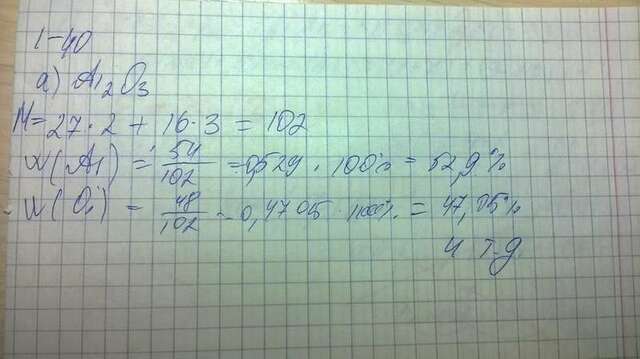 1-40
а) Al₂O₃
M = 27·2 + 16·3 = 102
W(Al) = 54/102 = 0,529 · 100% = 52,9%
W(O) = 48/102 = 0,4705 · 100% = 47,05%
и т.д